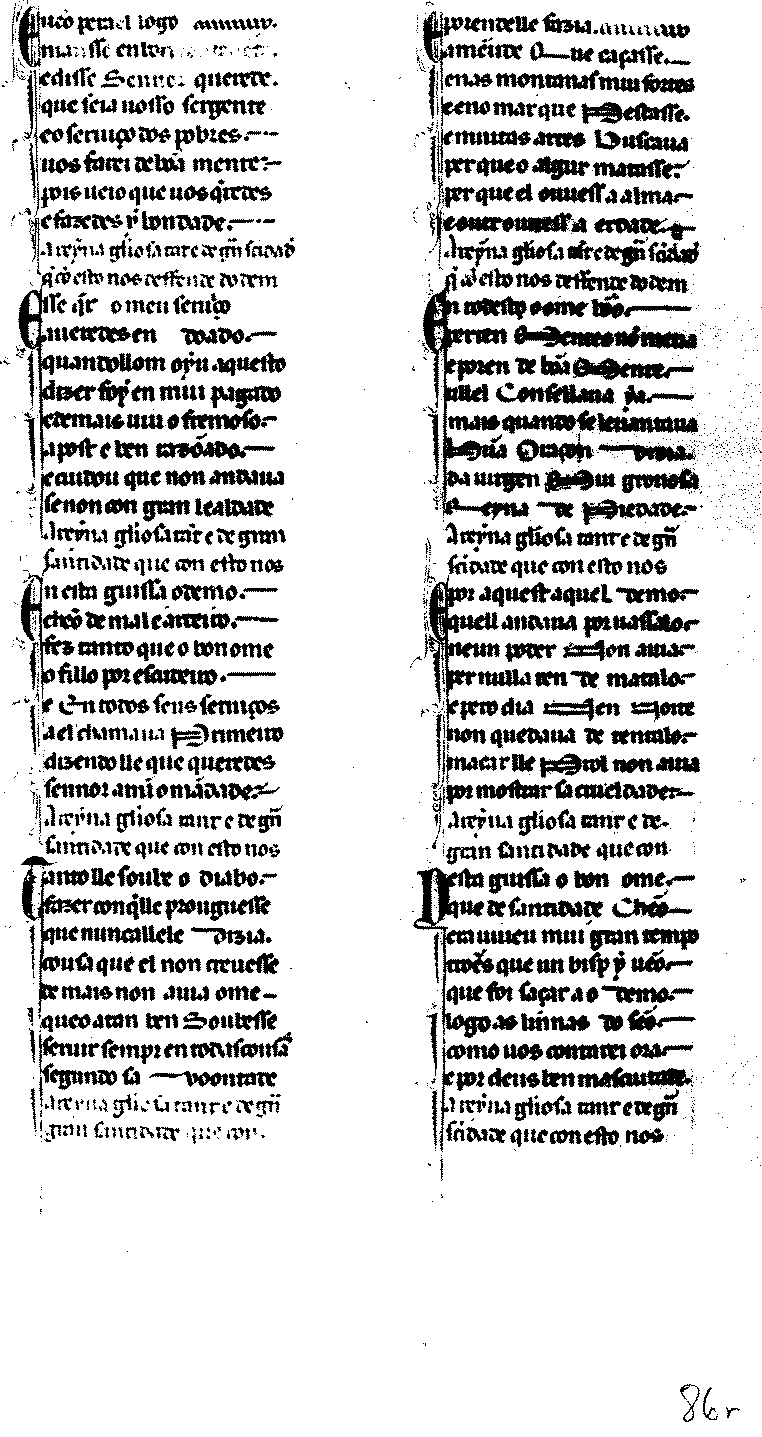 Enton pera el logo
manssé en bon
e disse Sennor querede.
que seia uosso sergente
e o seruiço dos pobres.
uos farei de bõa mente.
pois ueio que uos q̇redes
e fazedes y bondade.
A reyna gl̃iosa tant e de gr̃n scidad
q̇ cõ esto nos deffende do dem
Esse q̇r o meu seruiço
aueredes en doado.
quand ollom oyu aquesto
dizer foy en mui pagado
e demais uiu o fremoso.
apost e ben razõado.
e cuidou que non andaua
se non con gran lealdade
A reyna gl̃iosa tant e de gran
santidade que con esto nos
En esta guissa o demo.
chẽo de mal e arteiro.
fez tanto que o bon ome
o fillo por escudeiro.
e En todos seus seruiços
a el chamaua Primeiro
dizendo lle que queredes
sennor a mi o mãdade.
A reyna gliosa tant e de gñ
santidade que con esto nos
Tanto lle soube o diabo.
fazer con q̇ lle prouguesse
que nunca llele dizia.
cousa que el non creuesse
de mais non auia ome
que o atan ben Soubesse
seruir sempr en todas cousas
segundo sa uoontade
A reyna gl̃iosa tant e de gñ
gran santidade que con.
E porend lle fazia.
ameude Que caçasse.
enas montanas mui fortes
e eno mar que Pescasse.
e muitas artes Buscaua
per que o algur matasse.
per que el ouuess a alma
e outr ouuess a erdade.
A reyna gliosa tãt e de gñ scidad
q̇ cõ esto nos deffende do dem
En todesto o ome bõo.
per ren Mentes nõ metia
e poren de bõa Mente.
u llel Consellaua ya.
mais quando se leuantaua
hũa Oraçon dizia.
da uirgen Mui groriosa
Reyna de Piedade.
A reyna gliosa tant e de gñ
scidade que con esto nos
E por aquest aquel demo.
quell andaua por uassalo.
neun poder Non auia.
per nulla ren de matalo.
e pero dia Nen Noite
non quedaua de tentalo.
macar lle Prol non auia
por mostrar sa crueldade.
A reyna gliosa tant e de.
gran santidade que con
Desta guissa o bon ome.
que de santidade Chẽo
era uiueu mui gran tempo
trões que un bisp y uẽo.
que foi sacar a o demo.
logo as linnas do sẽo.
como uos contarei ora
e por deus ben m ascuitade.
A reyna gliosa tant e de gñ
scidade que con esto nos
86r